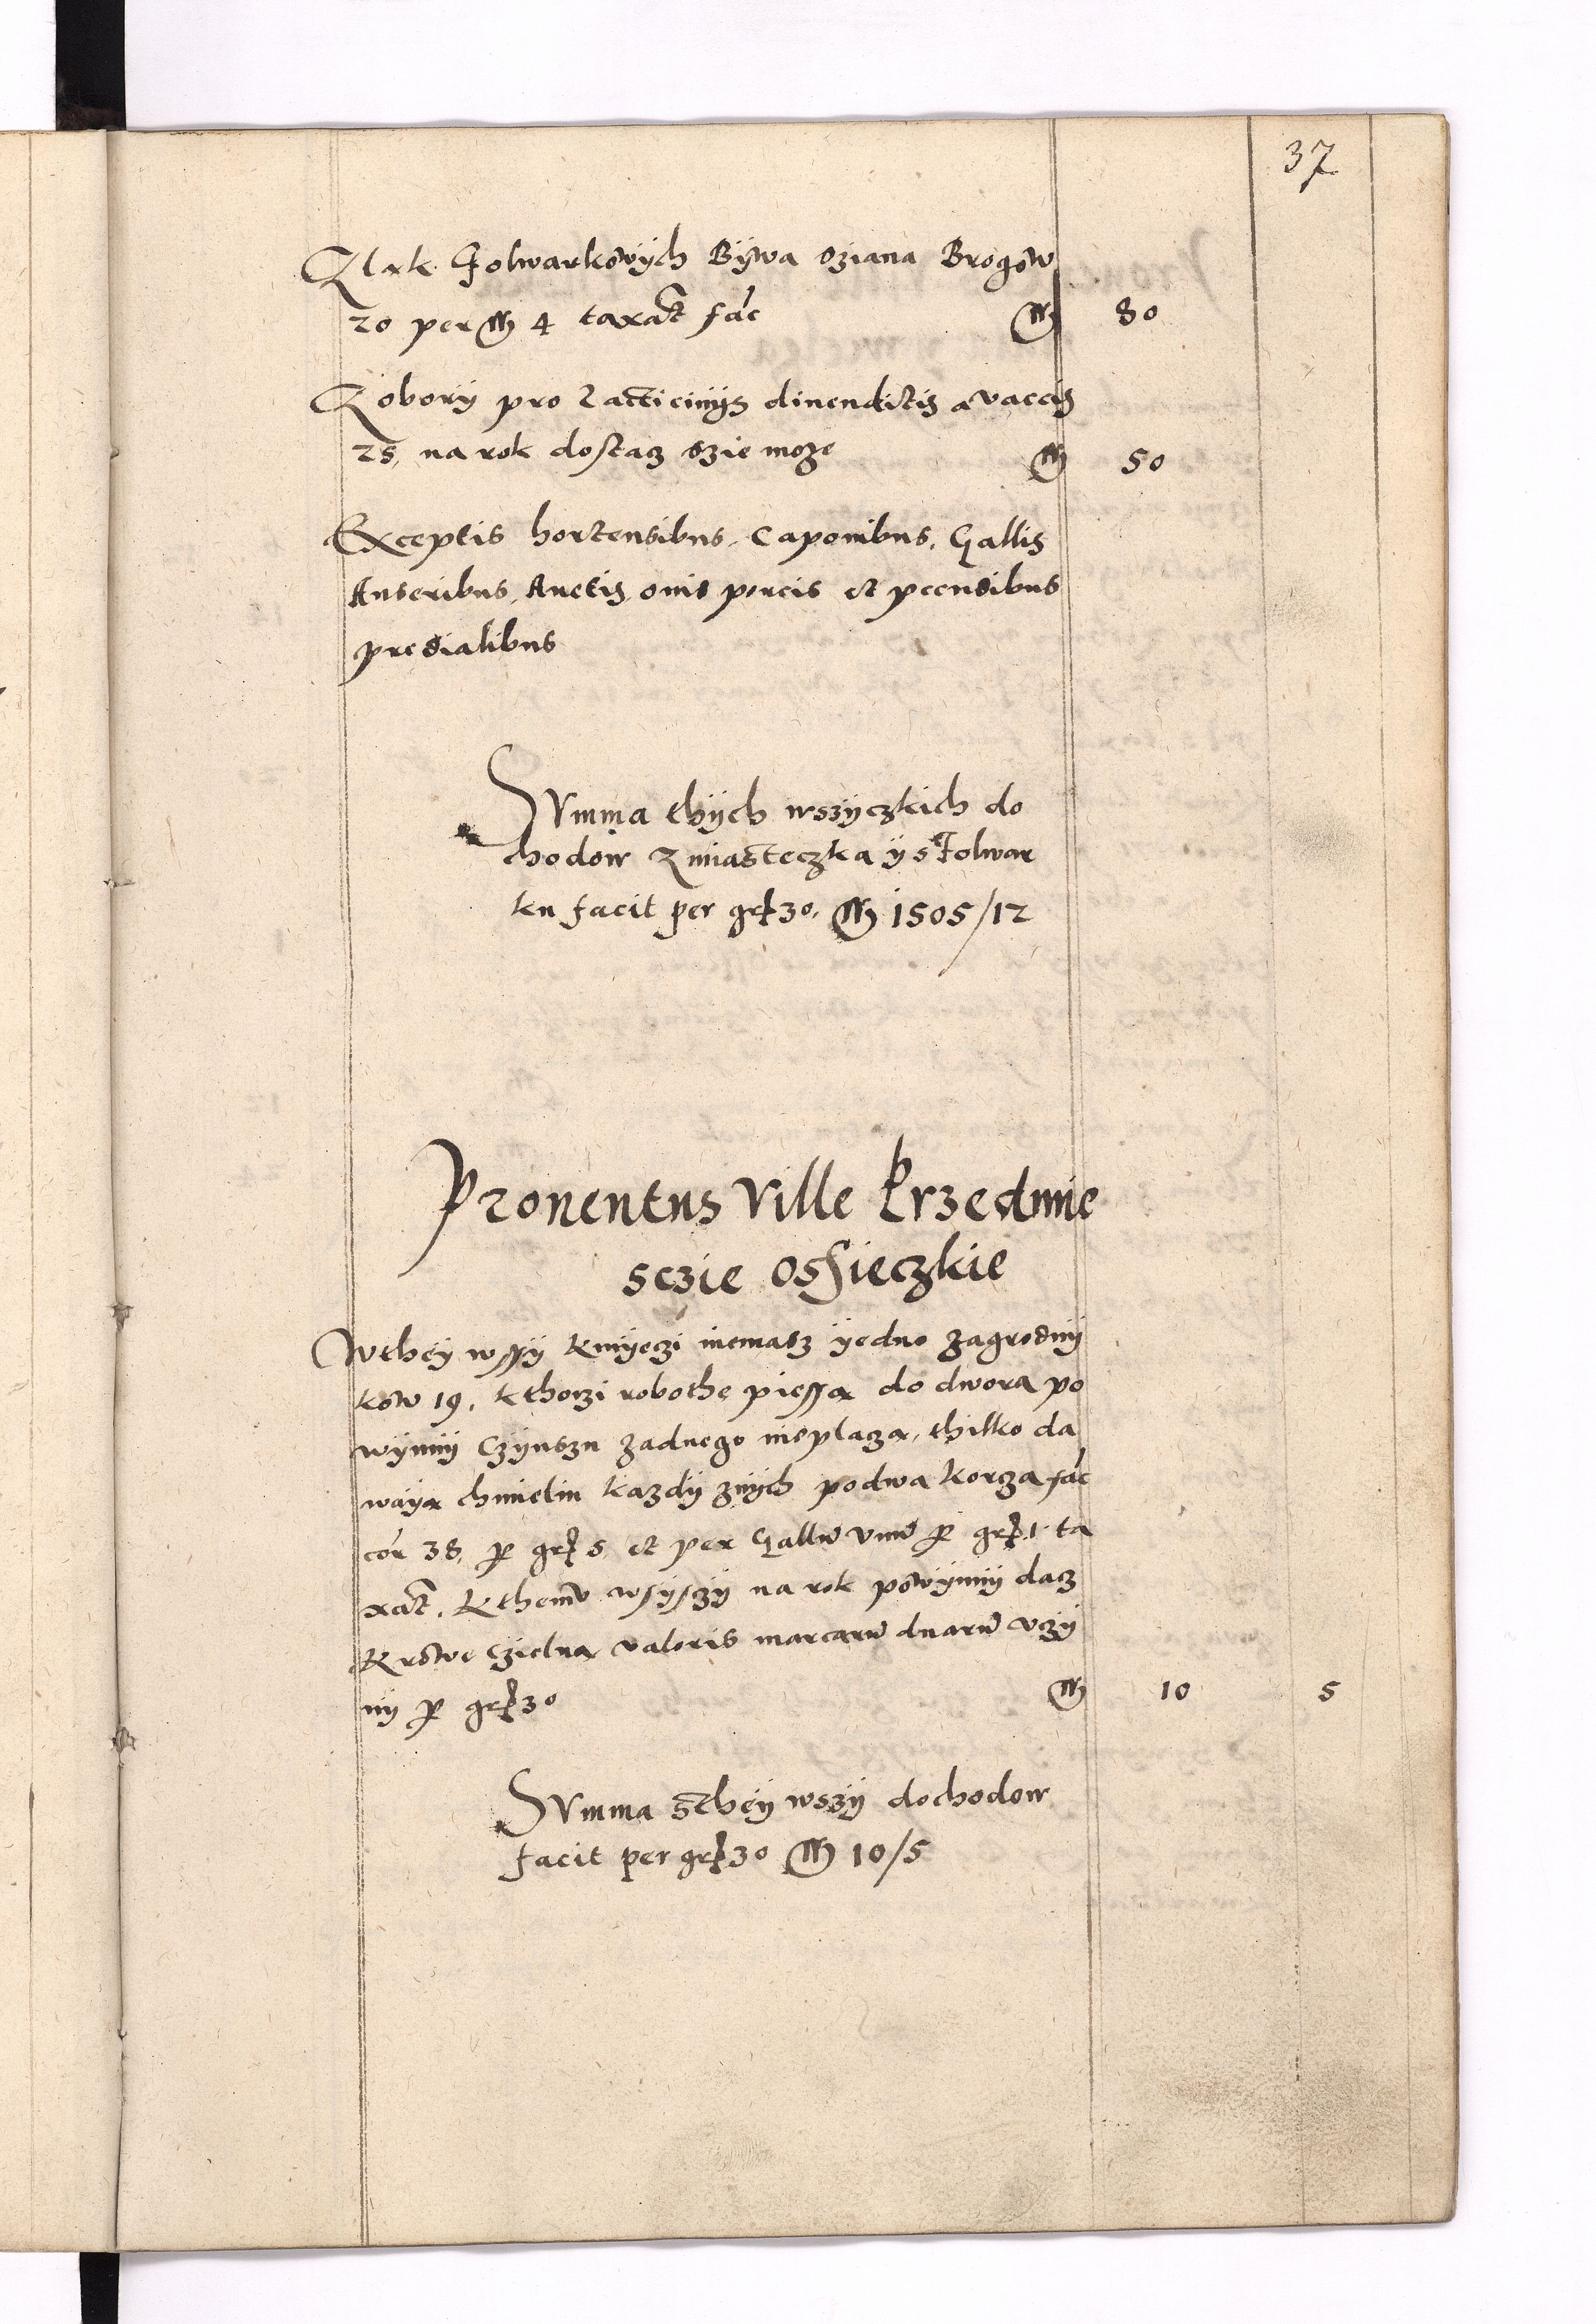 37
Zlak Folwarkowych Bywa sziana Brogow
20 per M 4 taxat fac M 80
Zobory pro Lacticinys divenditis a vaccis
25, na rok dostacz szie może M 50
Exceptis hortensibus, Caponibus, Gallis
Anseribus, Aucis, ovis porcis et pecudibus
predialibus
Summa thych wszyczkich do
chodow z miasteczka y s Folwar
ku facit per gr 30, M 1505/12
Proventus Ville Przedmie
sczie Ossieczkie
W they wssy kmyeczi niemasz yedno zagrodny
kow 19, kthorzi robothe piessą do dwora po
wynny Czynszu żadnego nie placzą, thilko da
wayą chmielu każdy znych po dwa korcza fac
cor 38, per gr 5, et per Gallum unum per gr 1 ta
xat, K themu wsyszy na rok powynny dacz
Krowe Czielną valoris marcarum duarum uczy
ny per gr 30 M 10 5
Summa s they wszy dochodow
facit per gr 30 M 10/5